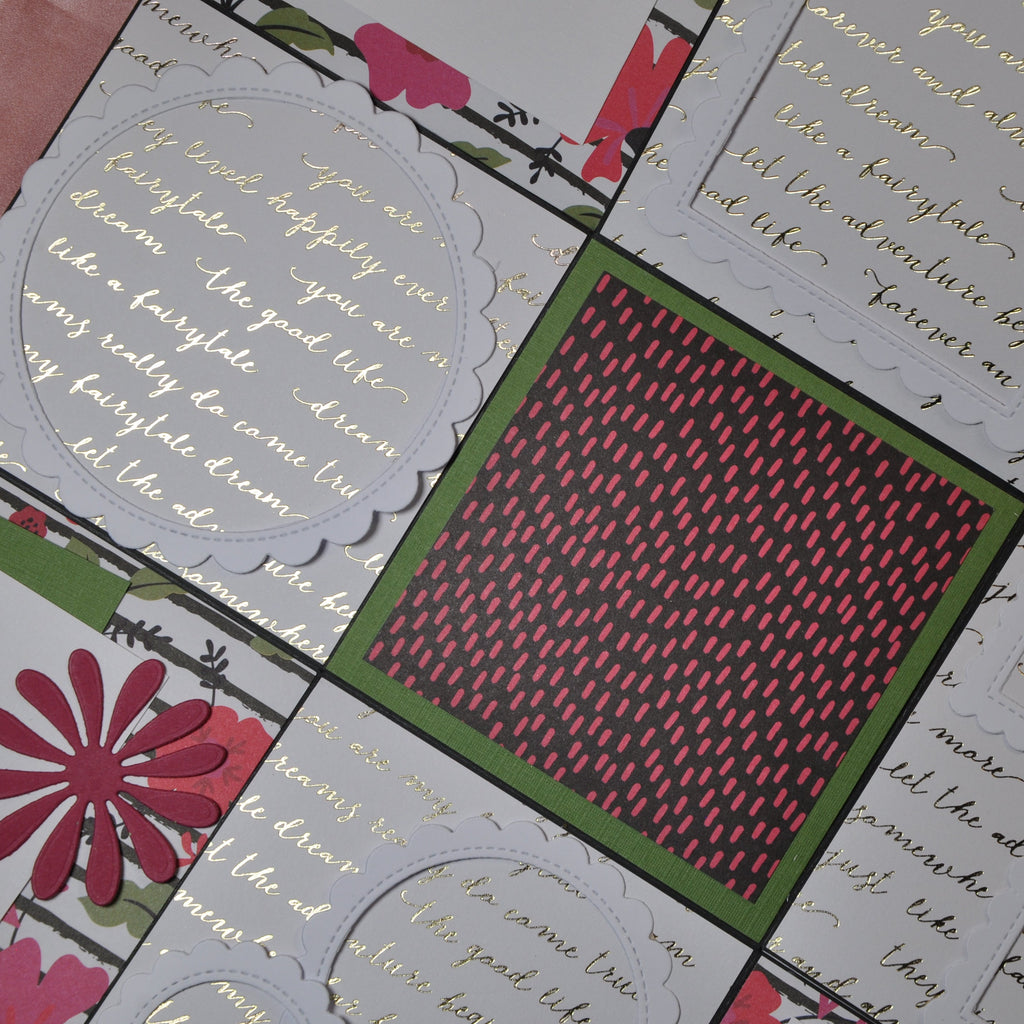 mewh
good
you are
ey lived happily ever
fairytale you are m
dream the good life
like a fairytale dream
ams really do come tru
my fairytale dream
let the ad
ure beg
somewhere
you a
forever and alw
tale dream
like a fairytale
let the adventure be
ood life forever an
you are my
reams rea
le dream
t the ad
mewh
do come true
the good life
nture beg
my
more
let the ad
somewhe
just like
they
r and al